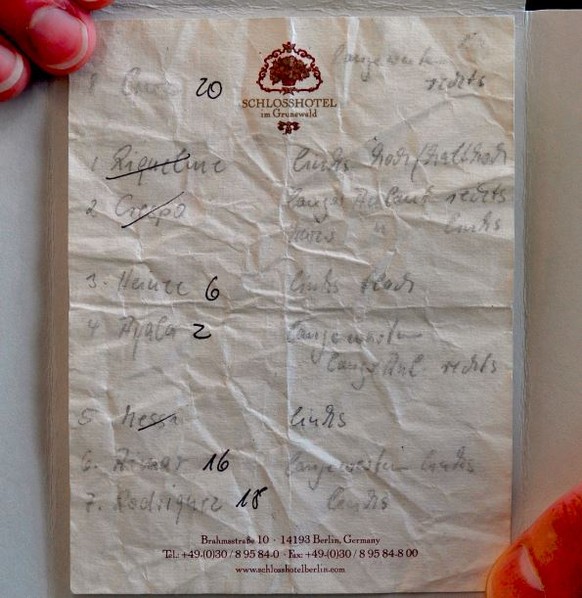 20
rechts
SCHLOSSHOTEL
im Grunewald
1 Riquelme links hoch/halbhoch
2 Crespo langer Anlauf rechts
kurz " links
3. Heinze 6 links flach
4 Ayala 2
langer Anl. rechts
5 Messi links
6. Aimar 16 links
7. Rodriguez 18 links
Brahmsstraße 10 · 14193 Berlin, Germany
Tel.: +49-(0)30 / 8 95 84-0 · Fax: +49-(0)30 / 8 95 84-8 00
www.schlosshotelberlin.com